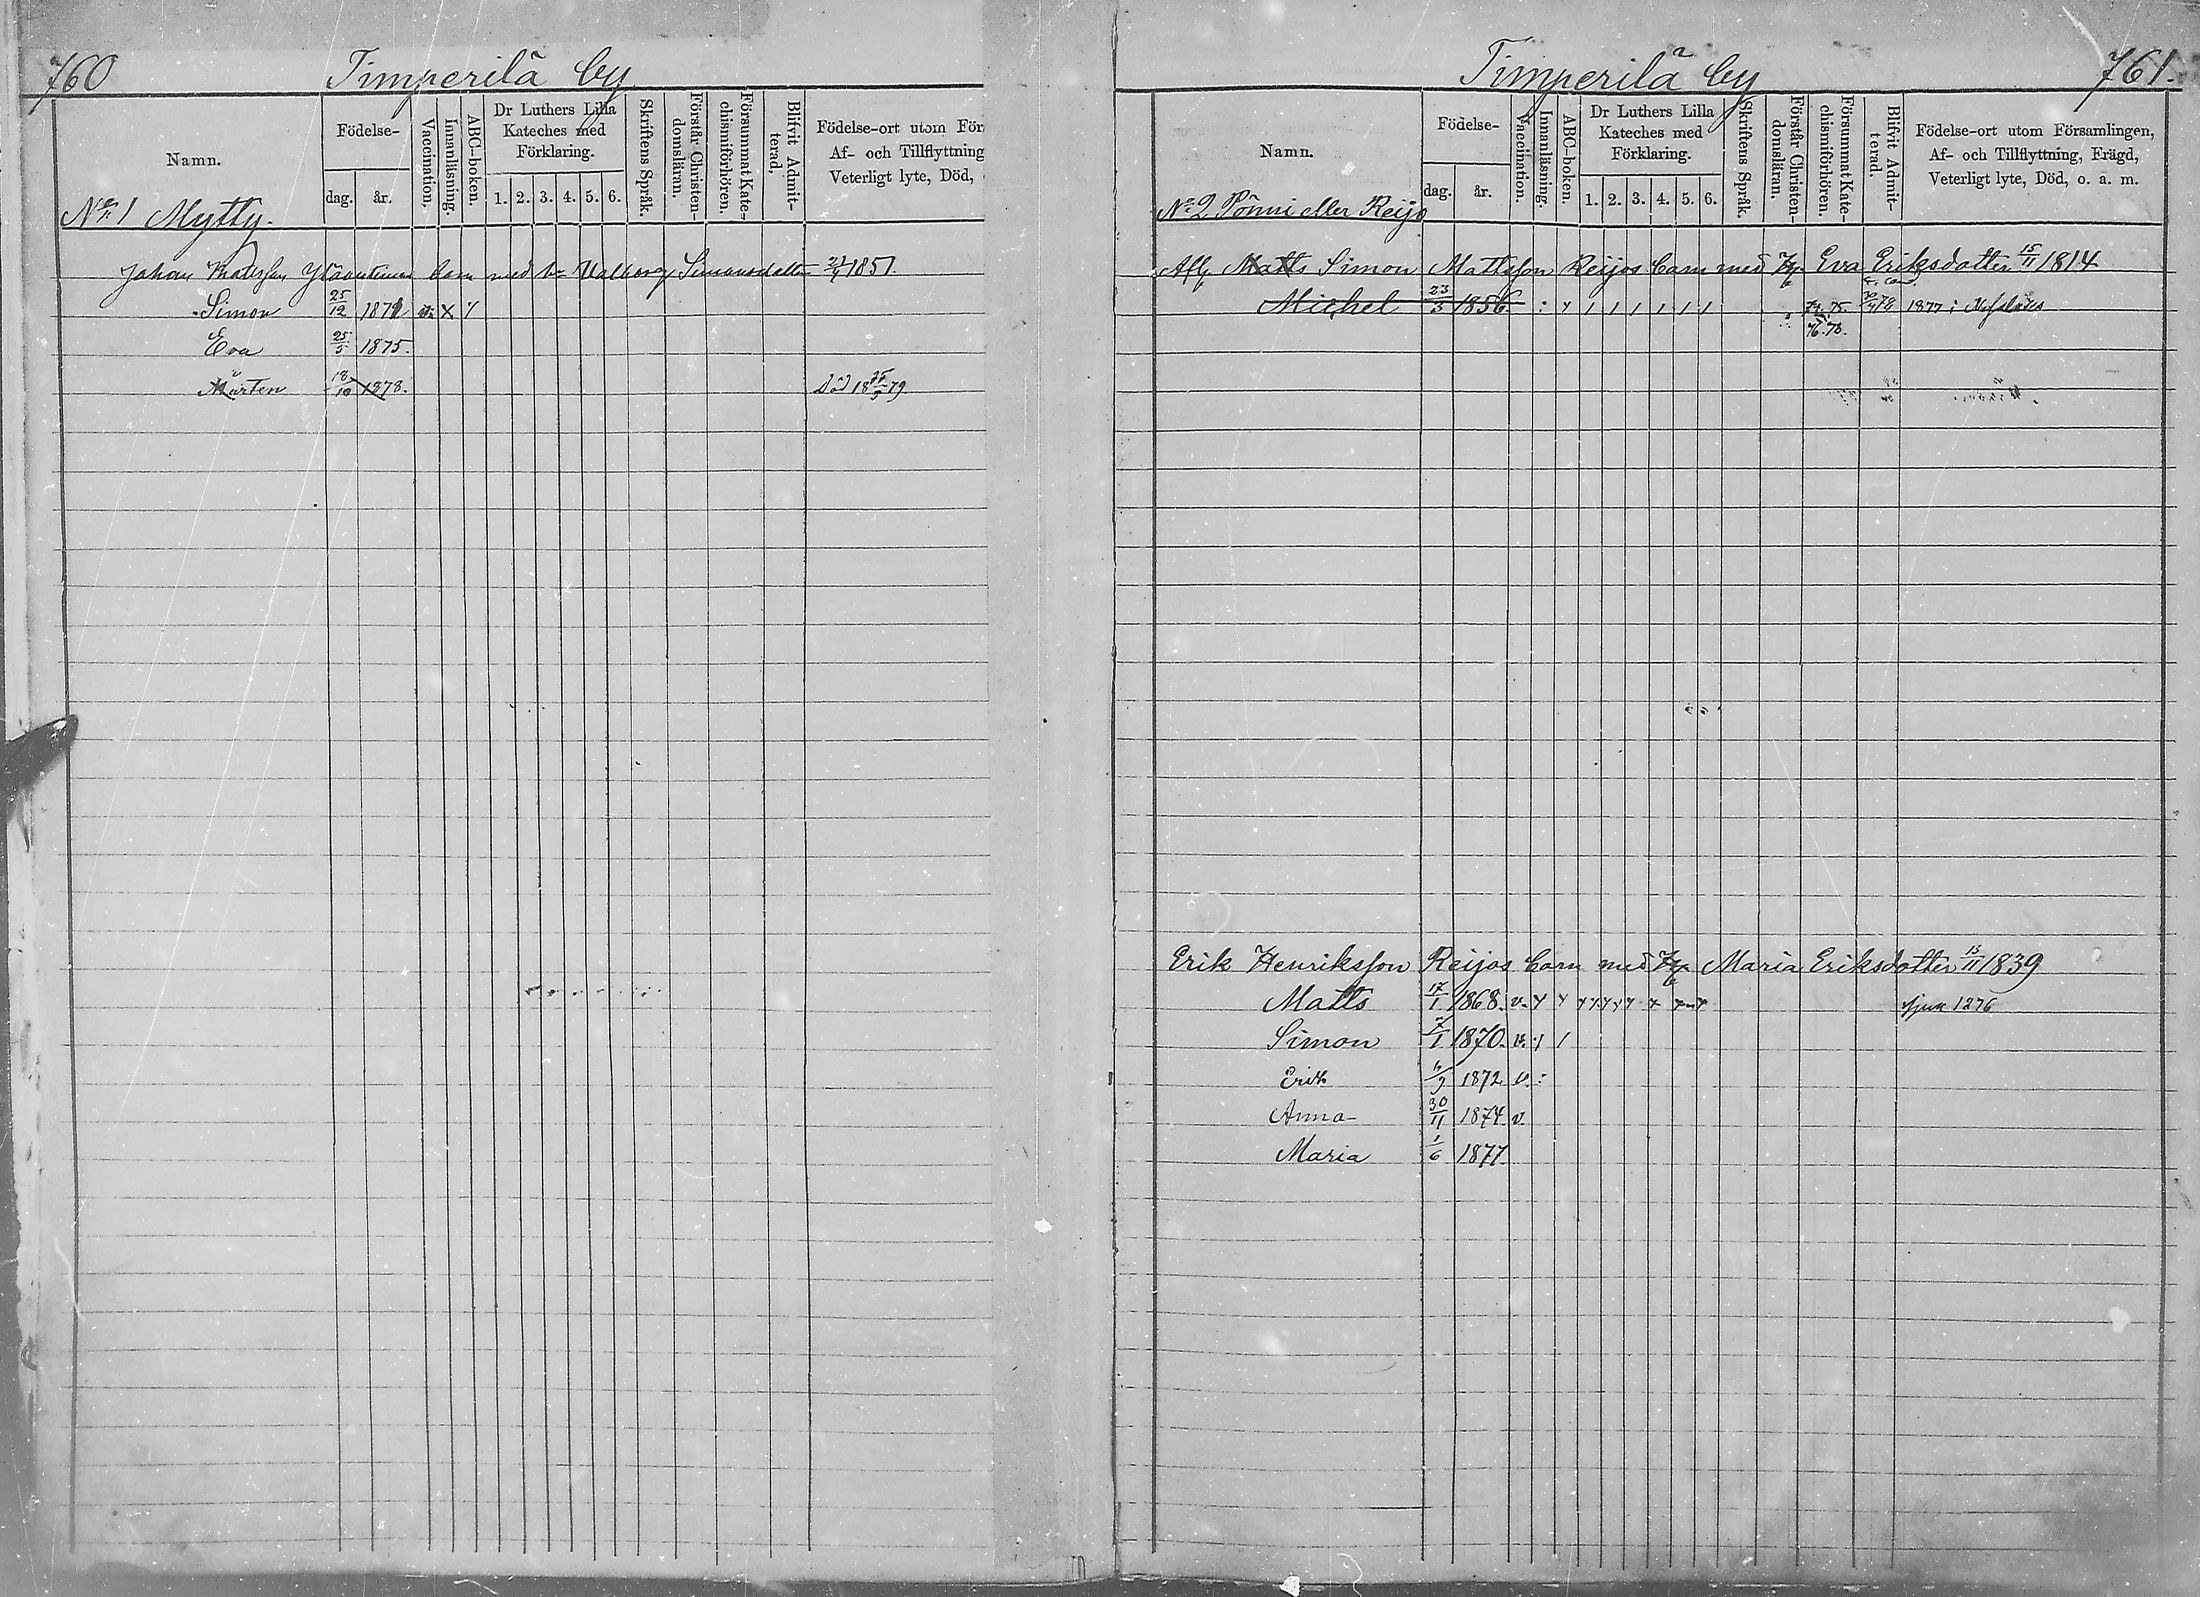 760 Timperilä by
Namn. Födelse- dag. år. Vaccination. Innanläsning. ABC-boken. Dr Luthers Lilla Kateches med Förklaring. 1. 2. 3. 4. 5. 6. Skriftens Språk. Förstår Christen-domsläran. Försummat Kate-chismiförhören. Blifvit Admit-terad. Födelse-ort utom För
Af- och Tillflyttning
Veterligt lyte, Död,
No 1 Mytty.
Johan Matsson barn med h. Valborg Simonsdotter 1851
Simon 25/12 1871 v. X
Eva 25/5 1875.
Mårten 18/10 1878. Död 18 25/5 79.
Timperilä by 761.
Namn. Födelse- dag. år. Vaccination. Innanläsning. ABC-boken. Dr Luthers Lilla Kateches med Förklaring. 1. 2. 3. 4. 5. 6. Skriftens Språk. Förstår Christen-domsläran. Försummat Kate-chismiförhören. Blifvit Admit-terad. Födelse-ort utom Församlingen,
Af- och Tillflyttning, Frägd,
Veterligt lyte, Död, o. a. m.
No 2 Pönni eller Reijo
Afl. Matts Simon Mattsson Reijos barn med Eva Eriksdotter 15/11 1814
Michel 23/3 1856 74. 75. 1877 i
76. 78.
Erik Henriksson Reijos barn med Maria Eriksdotter 15/11 1839
Matts 17/1 1868. v. sjuk 1876
Simon 7/1 1870. v.
Erik 1872 v.
Anna 30/11 1874 v.
Maria 1/6 1877.